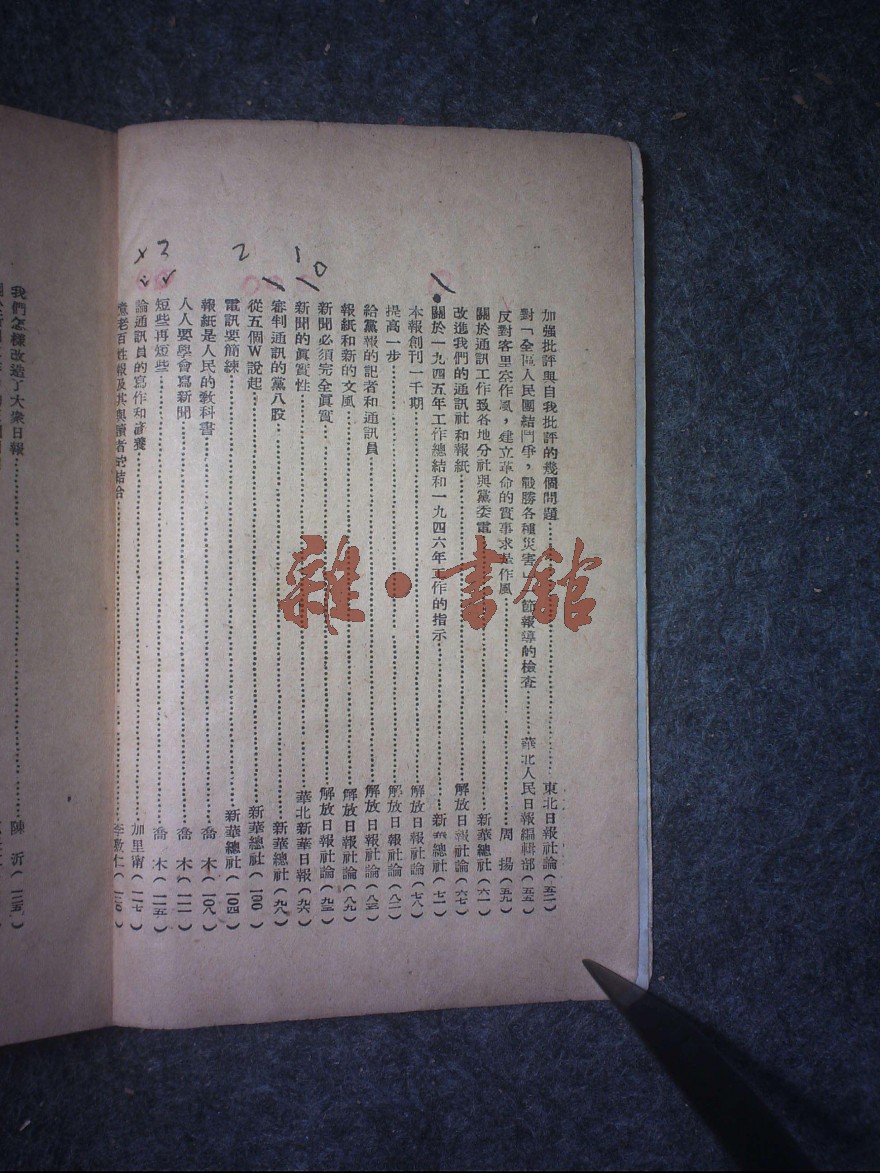 加强批評與自我批評的幾個問題……東北日報社論(五二)
對「全區人民團結鬥爭,戰勝各種災害」一節報導的檢查……華北人民日報編輯部(五五)
反對客里空作風,建立革命的實事求是作風……周 揚(五九)
關於通訊工作致各地分社與黨委電……新華總社(六一)
改進我們的通訊社和報紙……解放日報社論(六七)
關於一九四五年工作總結和一九四六年工作的指示……新華總社(七二)
本報創刊一千期……解放日報社論(七八)
提高一步……解放日報社論(八一)
給黨報的記者和通訊員……解放日報社論(八三)
報紙和新的文風……解放日報社論(八九)
新聞必須完全眞實……解放日報社論(九三)
新聞的眞實性……華北新華日報(九六)
審判通訊的黨八股……新華總社(九八)
從五個W說起……新華總社(一〇〇)
電訊要簡練……新華總社(一〇四)
報紙是人民的敎科書……喬 木(一〇八)
人人要學會寫新聞……喬 木(一一一)
短些再短些……喬 木(一一五)
論通訊員的寫作和修養……加里甯(一一七)
老百姓報及其與讀者的結合……李敷仁(一三〇)
我們怎樣改造了大衆日報……陳 沂(一三五)
x 3 2 1 0
雜·書館